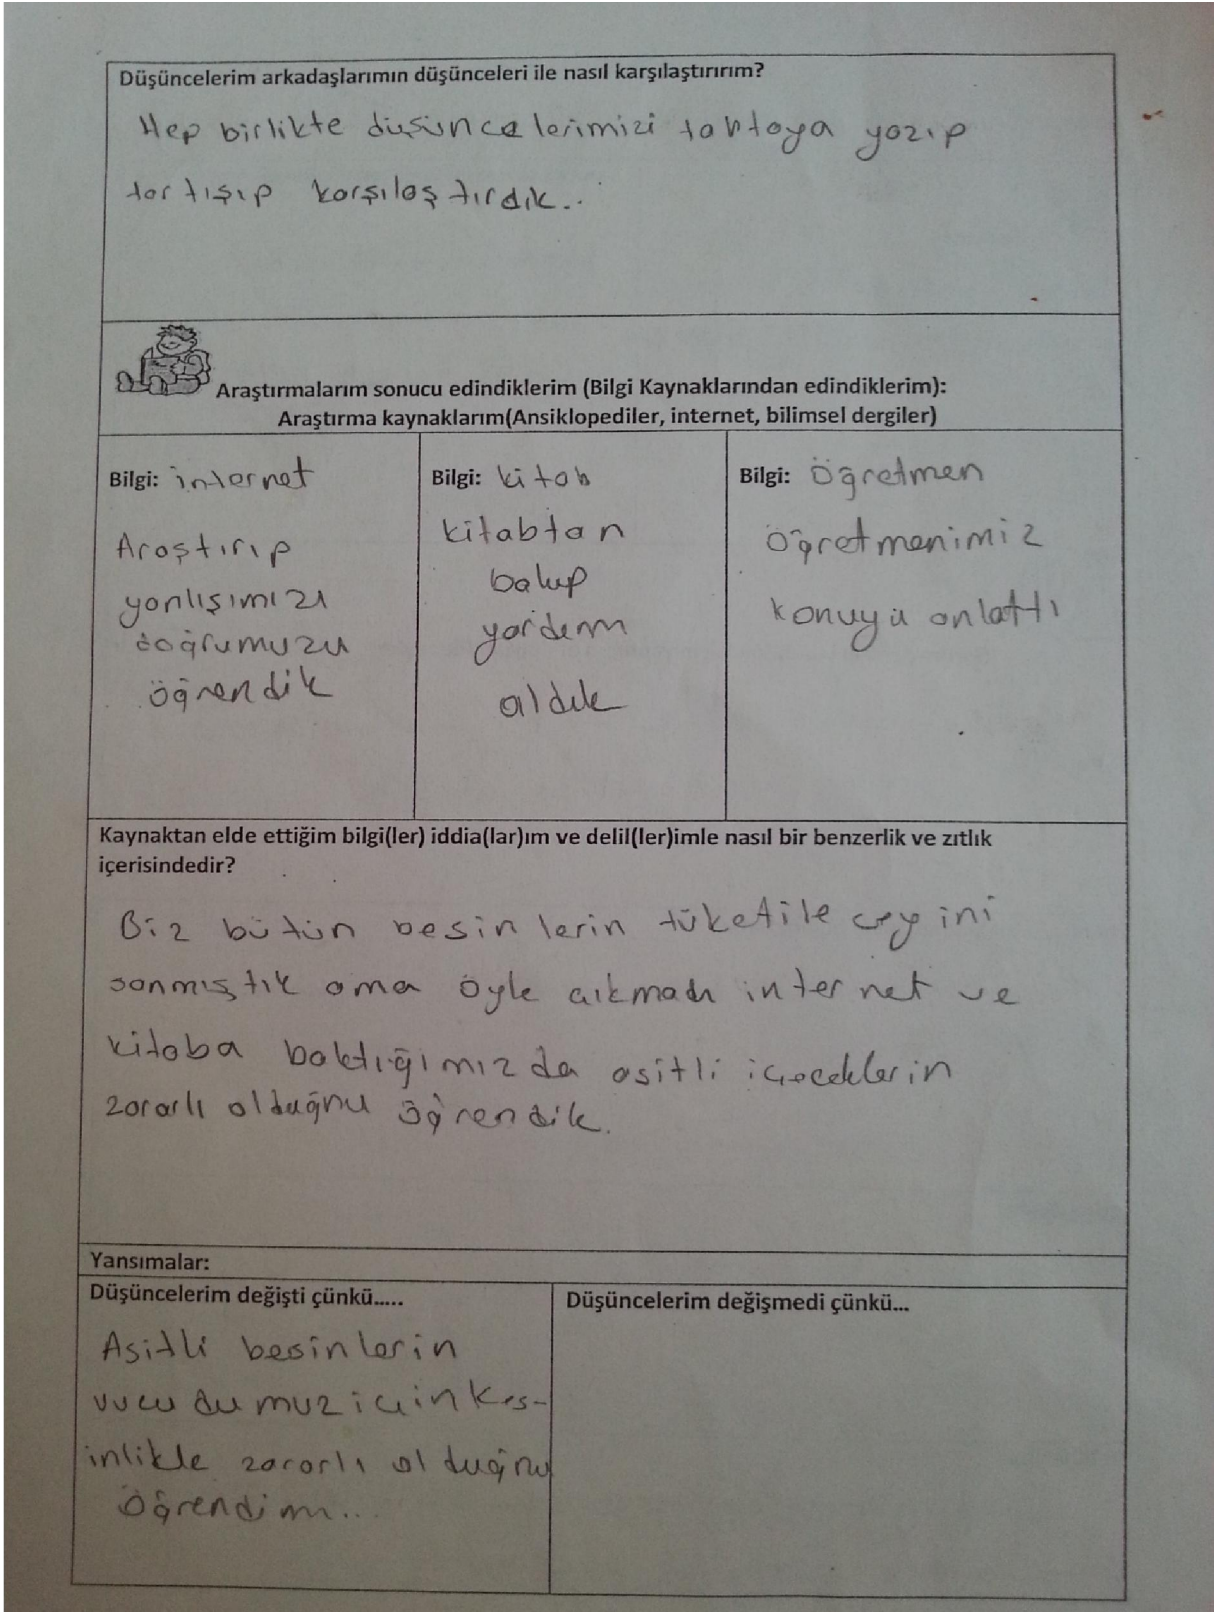 Düşüncelerim arkadaşlarımın düşünceleri ile nasıl karşılaştırırım?
Hep birlikte düşüncelerimizi tahtaya yazıp
tartışıp karşılaştırdık..
Araştırmalarım sonucu edindiklerim (Bilgi Kaynaklarından edindiklerim):
Araştırma kaynaklarım(Ansiklopediler, internet, bilimsel dergiler)
Bilgi: internet
Araştırıp
yanlışımızı
doğrumuzu
öğrendik
Bilgi: kitab
kitabtan
bakıp
yardım
aldık
Bilgi: Öğretmen
öğretmenimiz
konuyu anlattı
Kaynaktan elde ettiğim bilgi(ler) iddia(lar)ım ve delil(ler)imle nasıl bir benzerlik ve zıtlık
içerisindedir?
Biz bütün besinlerin tüketileceyini
sanmıştık ama öyle çıkmadı internet ve
kitaba baktığımızda asitli içeceklerin
zararlı olduğnu öğrendik.
Yansımalar:
Düşüncelerim değişti çünkü.....
Asitli besinlerin
vucudumuz için kes-
inlikle zararlı olduğnu
öğrendim...
Düşüncelerim değişmedi çünkü...